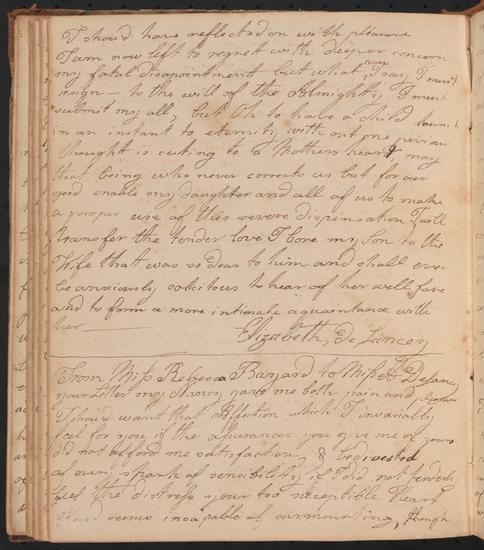 I should have reflected on with pleasure
I am now left to regret with deeper concern
my fatal disapointment but what can I say, I must
resign — to the will of the Almighty, I must
submit my all, but Oh to have a child
in an instant to eternity with out one previous
thought is cuting to a Mothers heart may
that being who never corrects us but for our
good enable my daughter and all of us to make
a proper use of this severe dispensation I will
transfer the tender love I bore my Son to the
Wife that was so dear to him and shall ever
be anxiously solicitous to hear of her well fare
and to form a more intimate aquaintance with
her —
Elizabeth De Lancey
From Miss Rebecca Bayard to Miss
your Letter my Nancy gave me both pain and pleasure
I should want that Affection which I invariably
feel for you if the assurances you give me of yours
did not afford me satisfaction, & be divested
of every spark of sensibility if I did not tenderly
feel the distress your too susceptible Heart
seems incapable of surmounting, though